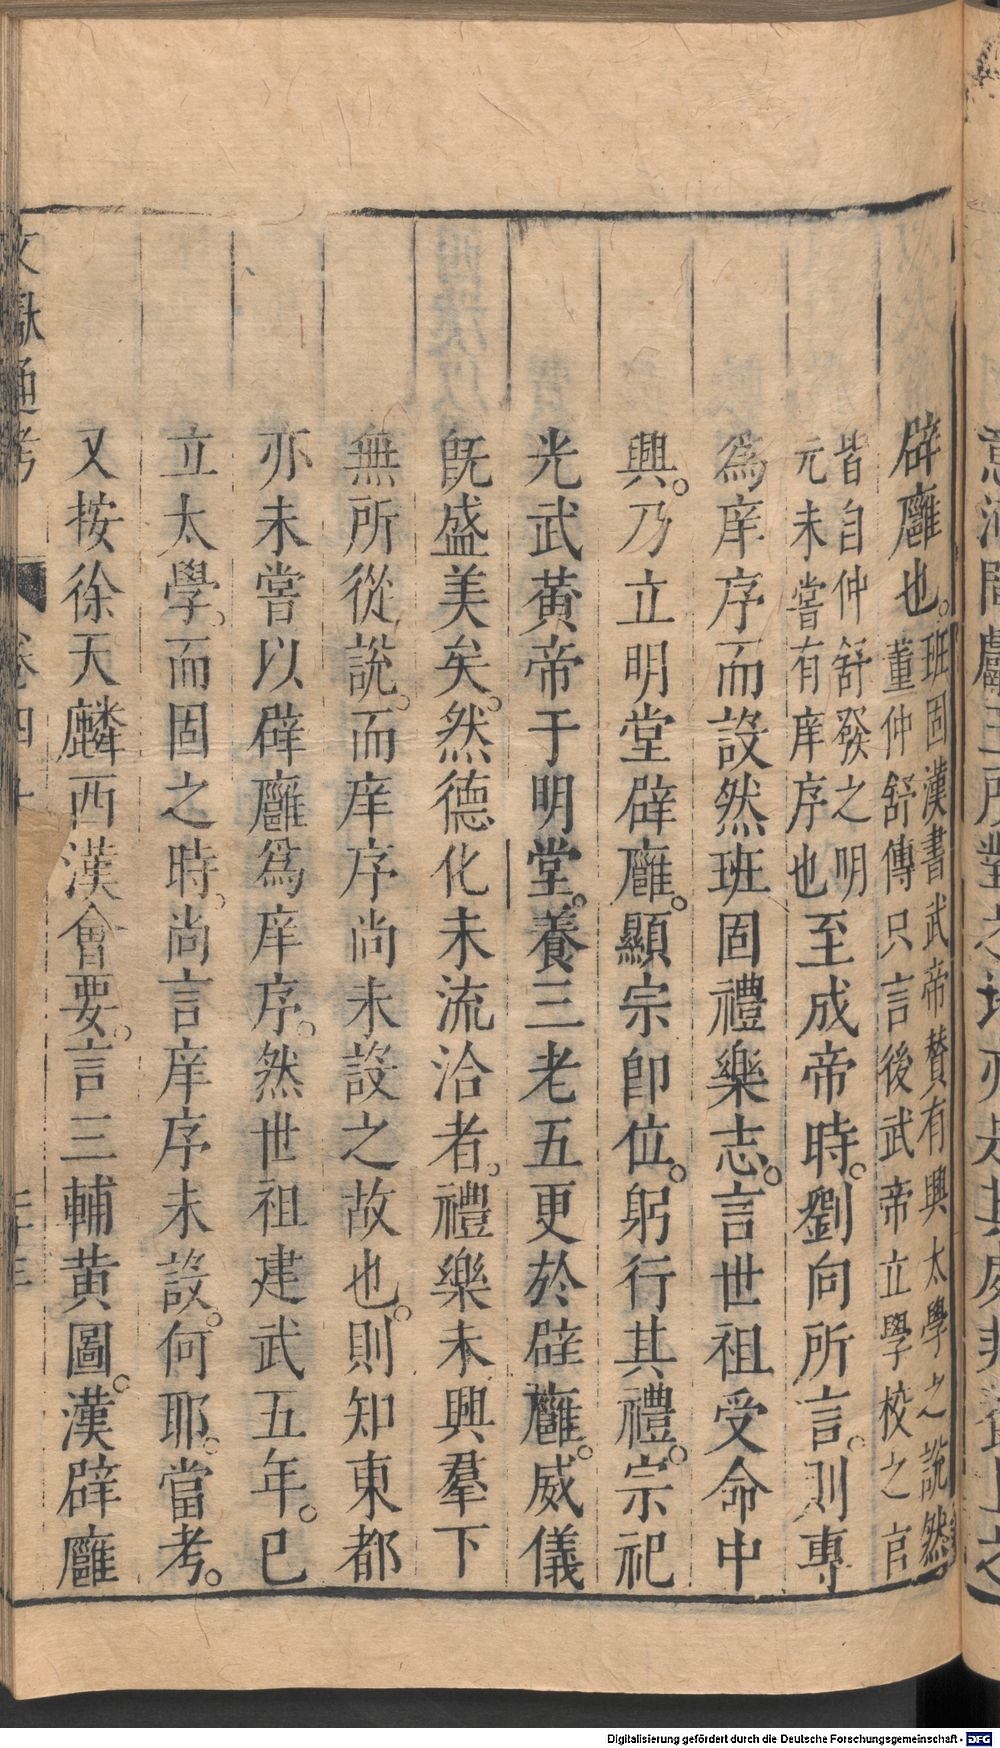 辟廱也。班固漢書武帝贊有興太學之說然
董仲舒傳只言後武帝立學校之官
皆自仲舒發之明
元未嘗有庠序也至成帝時。劉向所言。則專
爲庠序而設然班固禮樂志。言世祖受命中
興。乃立明堂辟廱。顯宗卽位。躬行其禮。宗祀
光武黃帝于明堂。養三老五更於辟廱。威儀
旣盛美矣。然德化未流洽者。禮樂未興羣下
無所從說。而庠序尚未設之故也。則知東都
亦未嘗以辟廱爲庠序。然世祖建武五年。已
立太學。而固之時。尚言庠序未設。何耶。當考。
又按徐天麟西漢會要。言三輔黃圖。漢辟廱
文獻通考 卷四十
Digitalisierung gefördert durch die Deutsche Forschungsgemeinschaft - DFG